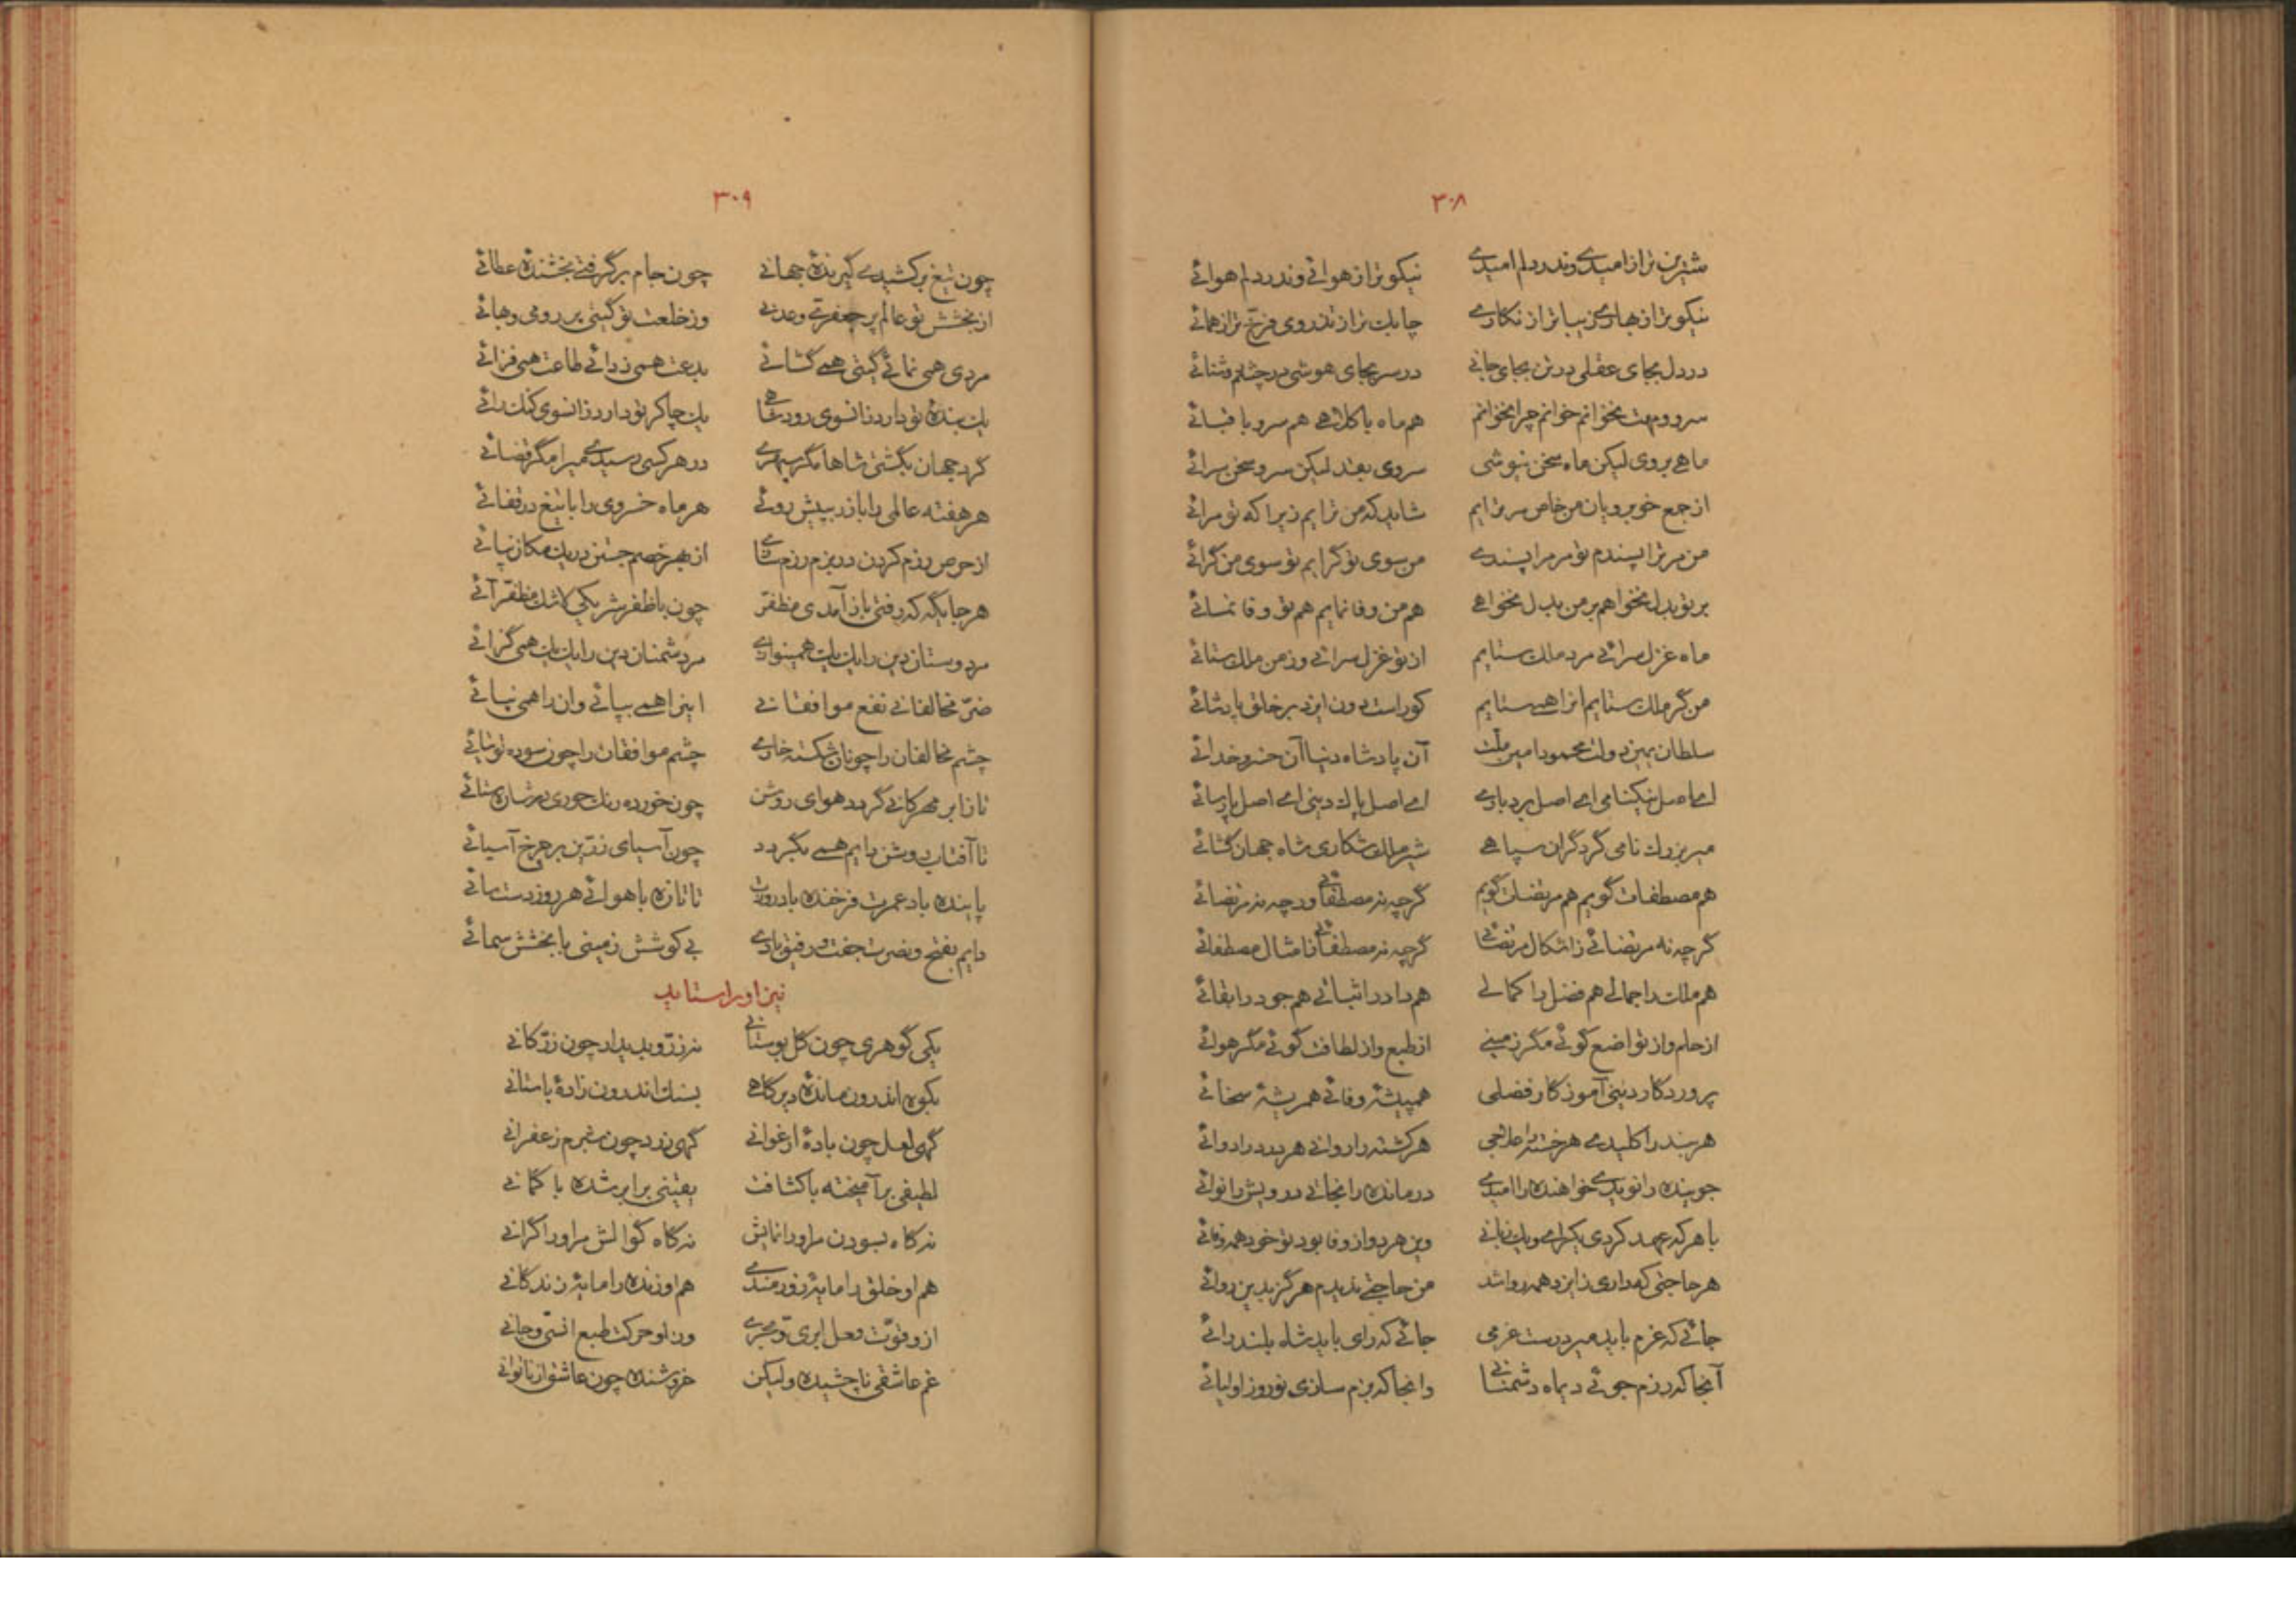 ۳۰۸
شیرین تر از امیدی وندر دلم امیدی نیکو تر از هوائی وندر دلم هوائی
نیکو تر از بهاری زیبا تر از نگاری چابک تر از تذروی فرخ تر از همائی
در دل بجای عقلی در تن بجای جانی در سر بجای هوشی در چشم
سرو و مهت نخوانم خوانم چرا نخوانم هم ماه با کلاهی هم سرو با قبائی
ماهی بروی لیکن ماه سخن نیوشی سروی بقد لیکن سرو سخن سرائی
از جمع خوبرویان من خاص مر ترایم شاید که من ترایم زیرا که تو مرائی
من مر ترا پسندم تو مر مرا پسندی من سوی تو گرایم تو سوی من گرائی
بر تو بدل نخواهم بر من بدل نخواهی هم من وفا نمایم هم تو وفا نمائی
ماه غزل سرائی مرد ملک ستایم از تو غزل سرائی وز من ملک ستائی
من گر ملک ستایم آنرا همی ستایم کوراست دون ایزد بر خلق پادشائی
سلطان یمین دولت محمود امین ملت آن پادشاه دنیا آن خسرو خدائی
ای اصل نیکنامی ای اصل بردباری ای اصل پاک دینی ای اصل پارسائی
میر بزرگ نامی گرد گران سپاهی شیر ملک شکاری شاه جهان گشائی
هم مصطفات گویم هم مرتضات گویم گرچه نه مصطفائی ورچه نه مرتضائی
گرچه نه مرتضائی ز اشکال مرتضائی گرچه نه مصطفائی ز امثال مصطفائی
هم ملک را جمالی هم فضل را کمالی هم داد را ثباتی هم جود را بقائی
از حلم و از تواضع گوئی مگر زمینی از طبع و از لطافت گوئی مگر هوائی
پروردگار دینی آموزگار فضلی هم پیشهٔ وفائی هم ریشهٔ سخائی
هر بند را کلیدی هر خسته را علاجی هر کشته را روانی هر درد را دوائی
جوینده را نویدی خواهنده را امیدی درمانده را نجاتی درویش را نوائی
با هر که عهد کردی یکرای و یک زبانی وین هر دو از وفا بود تو خود همه وفائی
هر حاجتی که داری ز ایزد همه روا شد من حاجتی ندیدم هرگز بدین روائی
جائی که عزم باید میر درست عزمی جائی که رای باید شاه بلند رائی
آنجا که رزم جوئی دیماه دشمنانی وانجا که بزم سازی نوروز اولیائی
۳۰۹
چون تیغ بر کشیدی گیرندهٔ جهانی چون جام بر گرفتی بخشندهٔ عطائی
از بخشش تو عالم پر جعفری و عدنی وز خلعت تو گیتی پر رومی و بهائی
مردی همی نمائی گیتی همی گشائی بدعت همی زدائی طاعت همی فزائی
یک بندهٔ تو دارد زانسوی رود شاهی یک چاکر تو دارد زانسوی کنک رائی
گرد جهان بگشتی شاها مگر سپهری در هر کسی رسیدی میرا مگر قضائی
هر هفته عالمی را باز در پیش روئی هر ماه خسروی را با تیغ در قفائی
از حرص رزم کردن در بزم رزم سازی از بهر خصم جستن در یک مکان نپائی
هر جایگه که رفتی باز آمدی مظفر چون با ظفر شریکی مظفر آئی
مر دوستان دین را یک یک همی نوازی مر دشمنان دین را یک یک همی گزائی
ضر مخالفانی نفع موافقانی اینرا همی بپائی وان را همی نپائی
چشم مخالفان را چونان شکسته خاری چشم موافقان را چون سوده توتیائی
تا ز ابر مهرکانی گردد هوای روشن چون خورده زنک
تا آفتاب روشن دایم همی بگردد چون آسیای زرین بر چرخ آسیائی
پاینده باد عمرت فرخنده باد روزت تا تازه با هوائی هر روز دست سائی
دایم بفتح و نصرت جفت و رفیق بادی بی کوشش زمینی با بخشش سمائی
نیز او راستاید
یکی گوهری چون گل بوستانی نه زر و بدیدار چون زر کانی
بکوه اندرون ماندهٔ دیر گاهی بسنک اندرون زادهٔ باستانی
گهی لعل چون بادهٔ ارغوانی گهی زرد چون بیرم زعفرانی
لطیفی بر آمیخته با کثافت یقینی برابر شده با گمانی
نه گاه بسودن مر او را نمایش نه گاه گوالش مر او را گرانی
هم او خلق را مایهٔ زورمندی هم او زنده را مایهٔ زندگانی
ازو قوت فعل بری و بحری وز او حرکت طبع انسی و جانی
غم عاشقی ناچشیده ولیکن خروشنده چون عاشق از ناتوانی